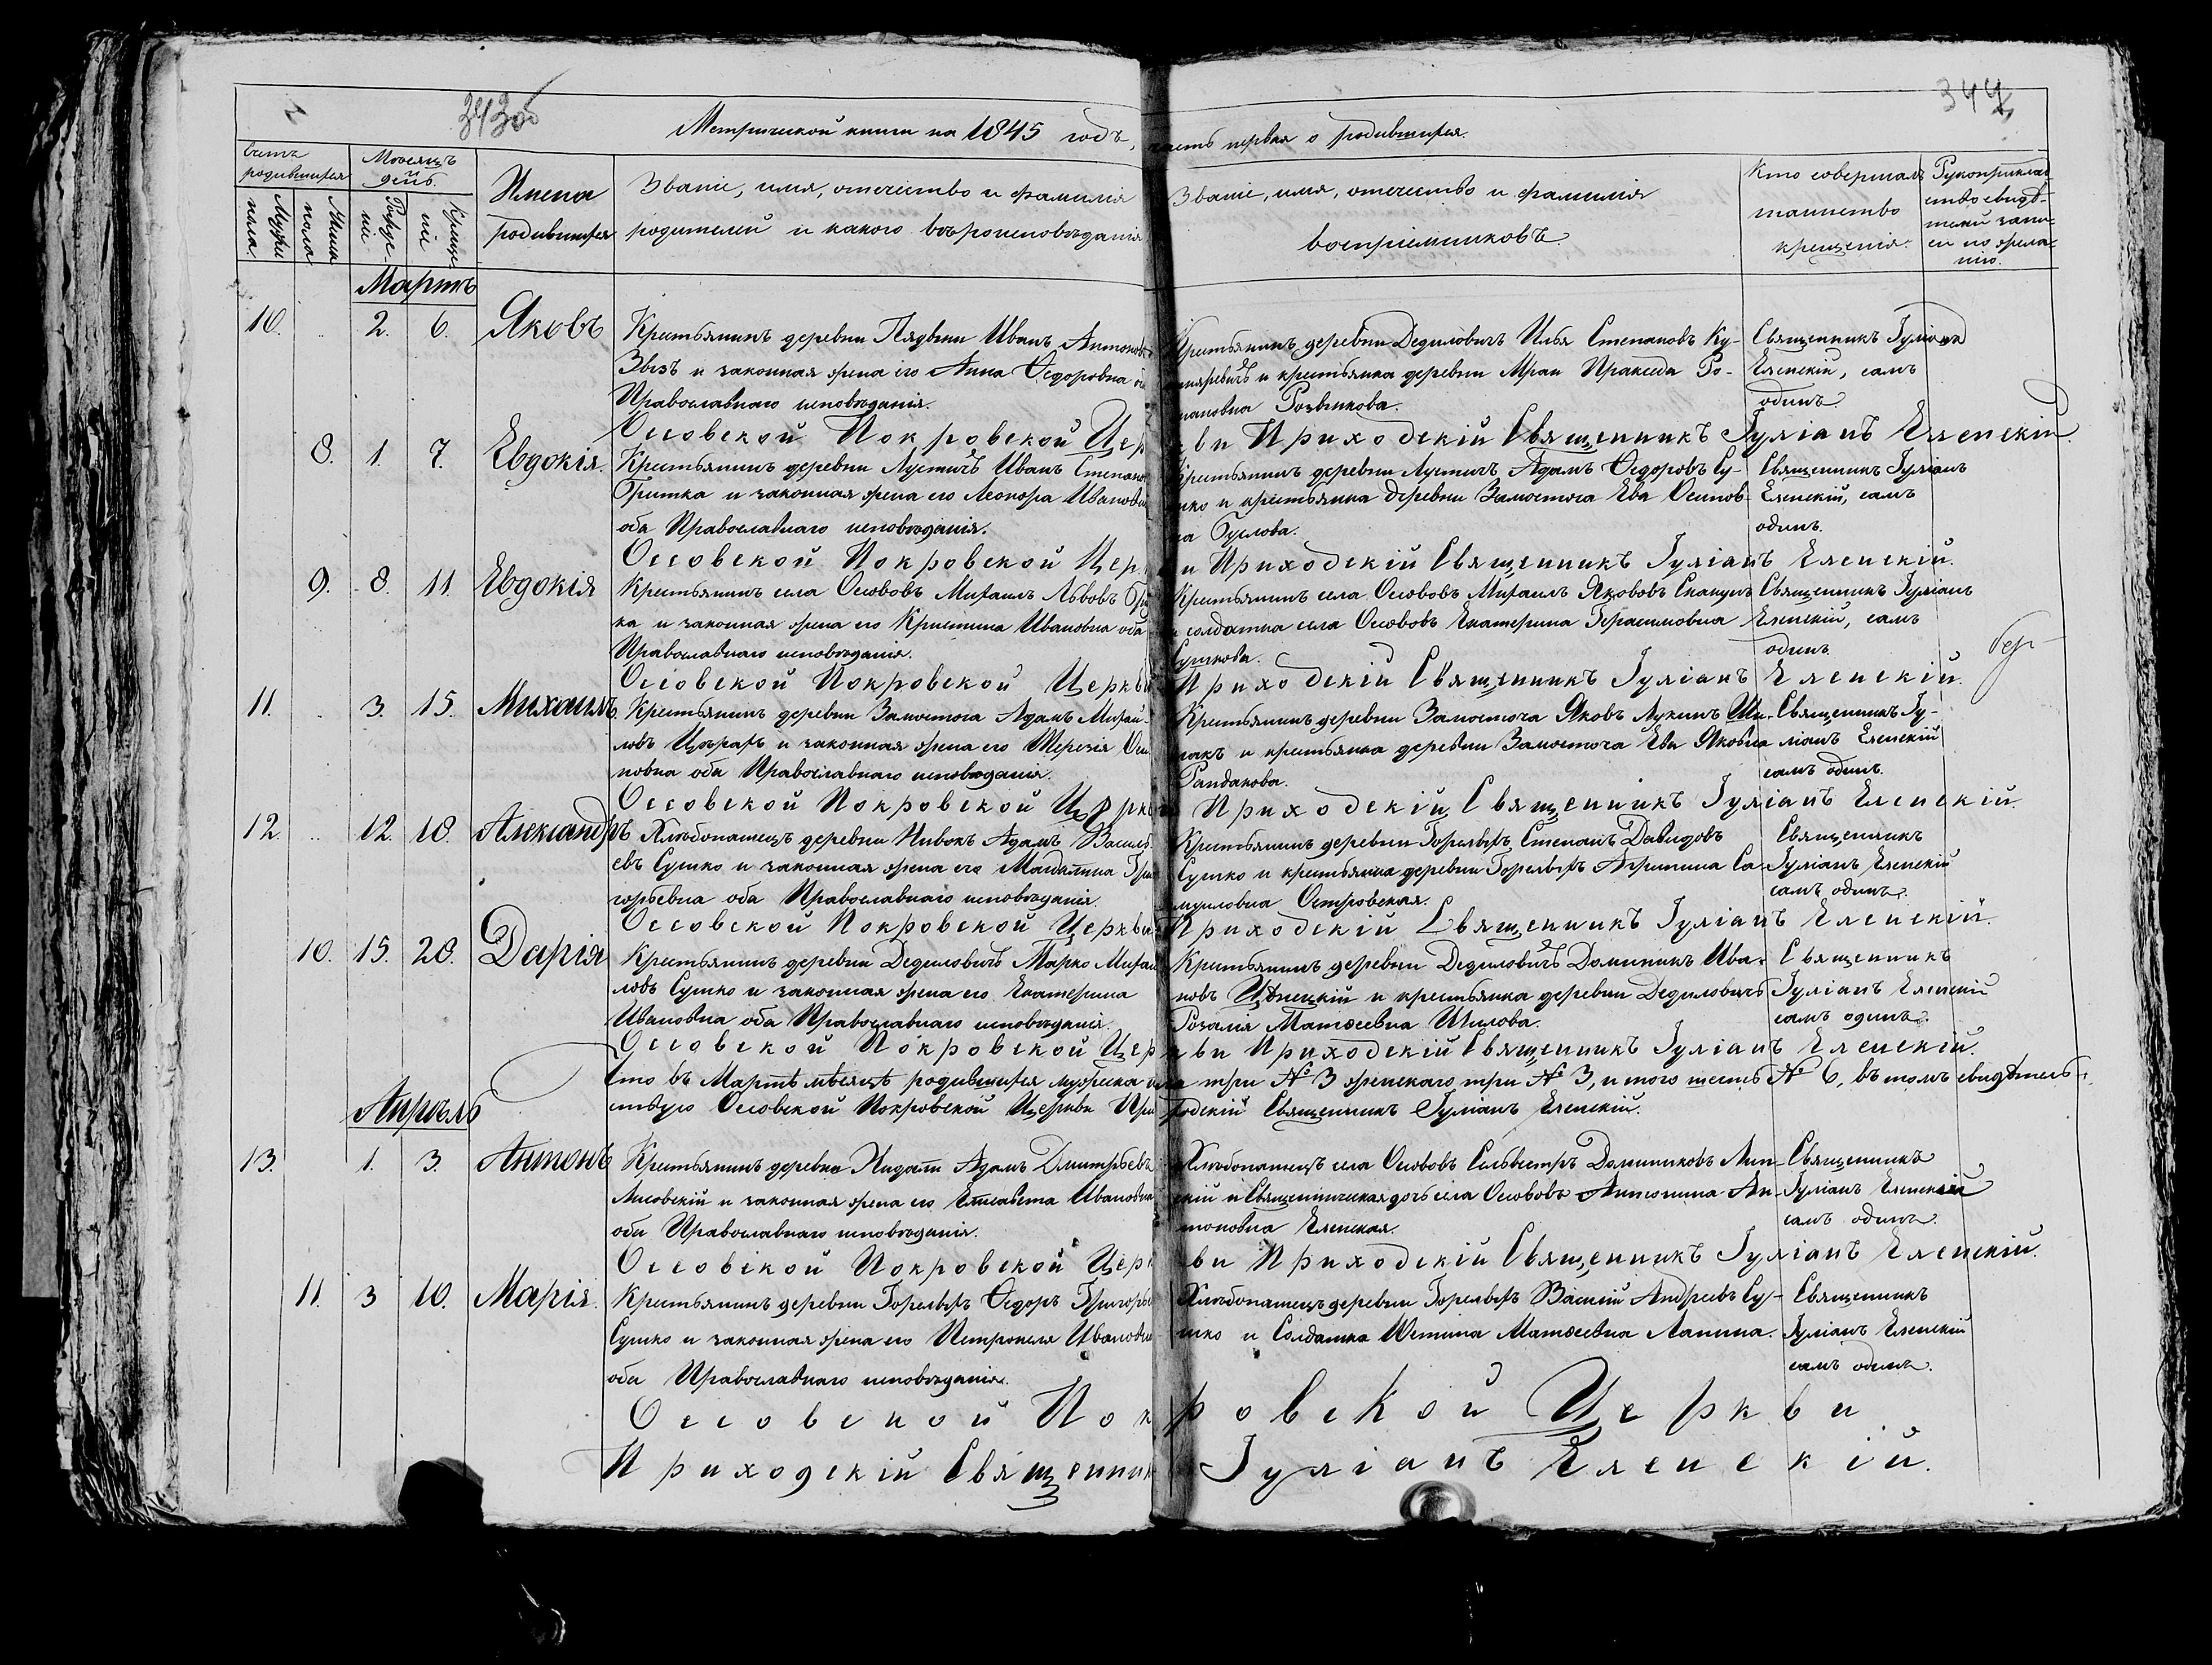 344
Метрической книги на 1845 годъ, часть первая о родившихся.
Счетъ родившихся
Мѣсяцъ и день.
Имена родившихся
Званіе, имя, отечество и фамилія
родителей и какого вѣроисповѣданія
Званіе, имя, отечество и фамилія
воспріемниковъ.
Кто совершалъ
таинство
крещенія.
Рукоприклад-
ство свидѣ-
телей запи-
си по жела-
нію.
Мартъ
10. 2. 6. Яковъ
Крестьянинъ деревни Иванъ Антоновъ
и законная жена его Анна Ѳедоровна
Православнаго исповѣданія.
Крестьянинъ деревни Дедиловичъ Илья Степановъ Ку-
и крестьянка деревни Мраи Пракседа Ро-
мановна
Священникъ Іуліанъ
Еленскій, самъ
одинъ.
Оссовской Покровской Церкви Приходскій Священникъ Іуліанъ Еленскій.
8. 1. 7. Евдокія.
Крестьянинъ деревни Лустичъ Иванъ Степановъ
Гритка и законная жена его Леонора Ивановна
оба Православнаго исповѣданія.
Крестьянинъ деревни Лустичъ Адамъ Ѳедоровъ Су-
шко и крестьянка деревни Замосточа Ева Осипов-
на Суслова.
Священникъ Іуліанъ
Еленскій, самъ
одинъ.
Оссовской Покровской Церкви Приходскій Священникъ Іуліанъ Еленскій.
9. 8. 11. Евдокія
Крестьянинъ села Осововъ Михаилъ Львовъ Грит-
ка и законная жена его Кристина Ивановна оба
Православнаго исповѣданія.
Крестьянинъ села Осововъ Михаилъ Якововъ Скакунъ
и солдатка села Осововъ Екатерина Герасимовна
Сушкова.
Священникъ Іуліанъ
Еленскій, самъ
одинъ.
Оссовской Покровской Церкви Приходскій Священникъ Іуліанъ Еленскій.
11. 3. 15. Михаилъ.
Крестьянинъ деревни Замосточа Адамъ Михай-
ловъ и законная жена его Терезія Оси-
повна оба Православнаго исповѣданія.
Крестьянинъ деревни Замосточа Яковъ Лукинъ
и крестьянка деревни Замосточа Ева Яковна
Рандакова.
Священникъ Іу-
ліанъ Еленскій
самъ одинъ.
Оссовской Покровской Церкви Приходскій Священникъ Іуліанъ Еленскій.
12. 12. 18. Александръ
Хлѣбопашецъ деревни Нивокъ Адамъ Василь-
евъ Сушко и законная жена его Магдалина Гри-
горьевна оба Православнаго исповѣданія.
Крестьянинъ деревни Степанъ Давидовъ
Сушко и крестьянка деревни Агрипина Са-
муиловна Островская.
Священникъ
Іуліанъ Еленскій
самъ одинъ.
Оссовской Покровской Церкви Приходскій Священникъ Іуліанъ Еленскій.
10. 15. 20. Дарія
Крестьянинъ деревни Дедиловичъ Марко Михай-
ловъ Сушко и законная жена его Екатерина
Ивановна оба Православнаго исповѣданія.
Крестьянинъ деревни Дедиловичъ Доминикъ Ива-
новъ и крестьянка деревни Дедиловичъ
Розалія Матѳеевна Шилова.
Священникъ
Іуліанъ Еленскій
самъ одинъ.
Оссовской Покровской Церкви Приходскій Священникъ Іуліанъ Еленскій.
Что въ Мартѣ мѣсяцѣ родившихся мужеска пола три № 3 женскаго три № 3, итого шесть № 6, въ томъ свидѣтель-
ствую Оссовской Покровской Церкви Приходскій Священникъ Іуліанъ Еленскій.
Апрѣль
13. 1. 3. Антонъ
Крестьянинъ деревни Адамъ Дмитріевъ
Лисовскій и законная жена его Елисавета Ивановна
оба Православнаго исповѣданія.
Хлѣбопашецъ села Осововъ Сильвестръ Доминиковъ Лип-
скій и Священническая дочь села Осововъ Антонина Ан-
тоновна Еленская.
Священникъ
Іуліанъ Еленскій
самъ одинъ.
Оссовской Покровской Церкви Приходскій Священникъ Іуліанъ Еленскій.
11. 3 10. Марія.
Крестьянинъ деревни Ѳедоръ Григорьевъ
Сушко и законная жена его Петронеля Ивановна
оба Православнаго исповѣданія.
Хлѣбопашецъ деревни Василій Андреевъ Су-
шко и Солдатка Юстина Матѳеевна Лапина.
Священникъ
Іуліанъ Еленскій
самъ одинъ.
Оссовской Покровской Церкви
Приходскій Священникъ Іуліанъ Еленскій.